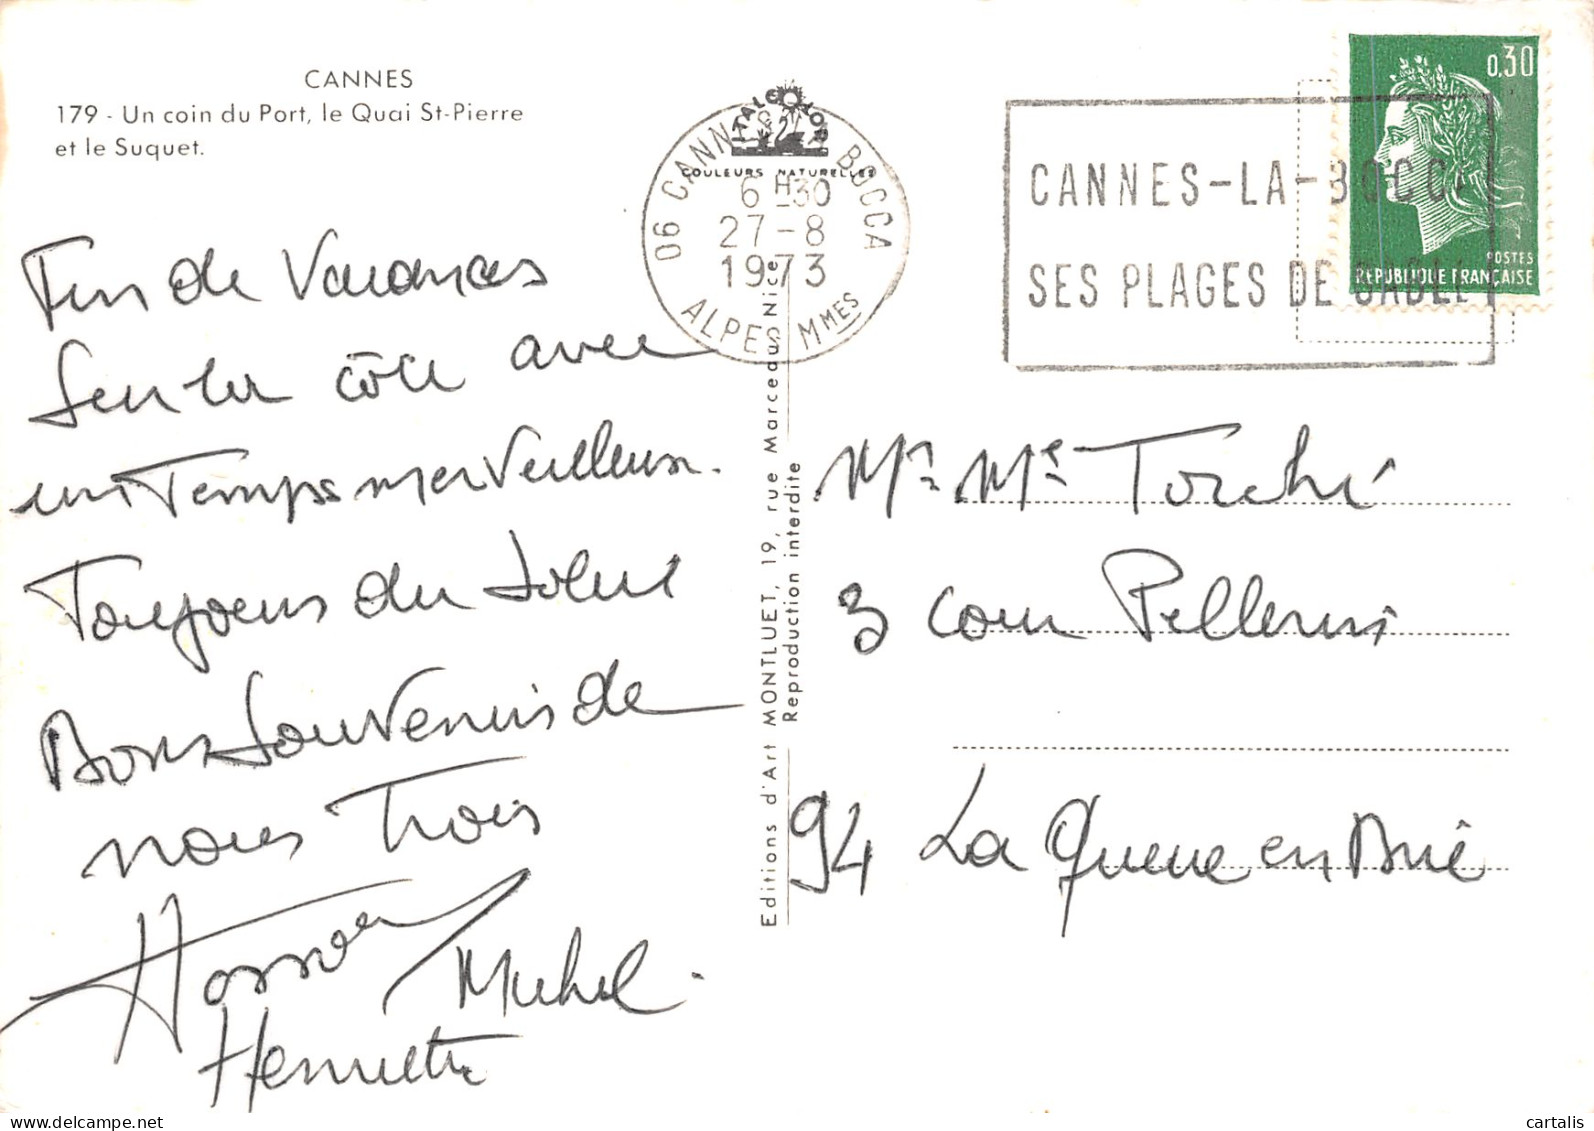 CANNES
179 - Un coin du Port, le Quai St-Pierre
et le Suquet.
Fin de Vacances
Sur la côte avec
un Temps merveilleux.
Toujours du Soleil
Bons Souvenirs de
nous Trois
Michel
Henriette
ITALCOLOR
COULEURS NATURELLES
06 CANNES LA BOCCA
6H30
27-8
1973
ALPES MMES
Editions d'Art MONTLUET, 19, rue Marceau Nice
Reproduction interdite
CANNES-LA-BOCCA
SES PLAGES DE SABLE
0,30
POSTES
REPUBLIQUE FRANÇAISE
Mr Me Torché
3 cour Pellerin
94 La Queue en Brie
delcampe.net
cartalis